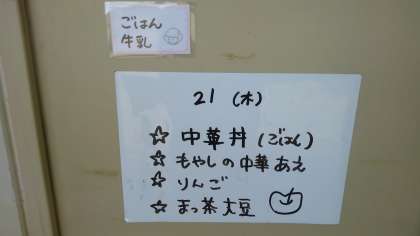 ごはん
牛乳
21 (木)
☆ 中華丼 (ごはん)
☆ もやしの中華あえ
☆ りんご
☆ まっ茶大豆